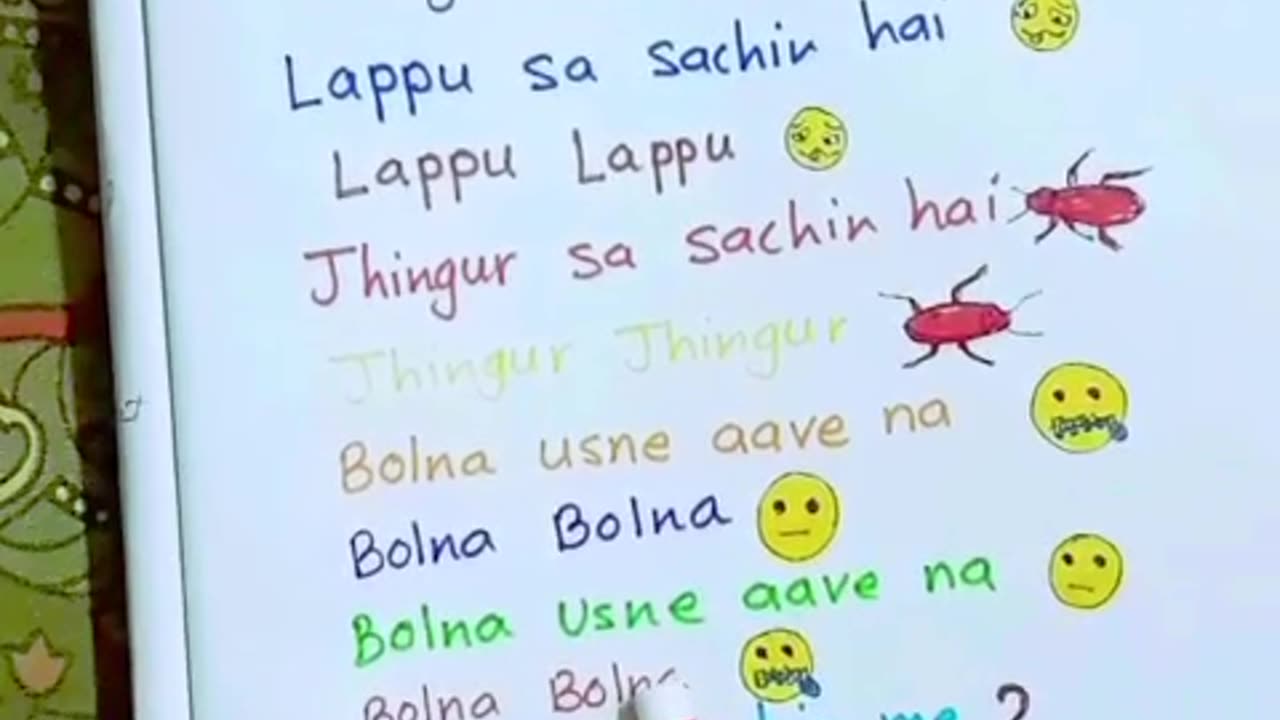 Lappu sa sachin hai
Lappu Lappu
Jhingur sa sachin hai
Jhingur Jhingur
Bolna usne aave na
Bolna Bolna
Bolna usne aave na
Bolna Bolna
me ?